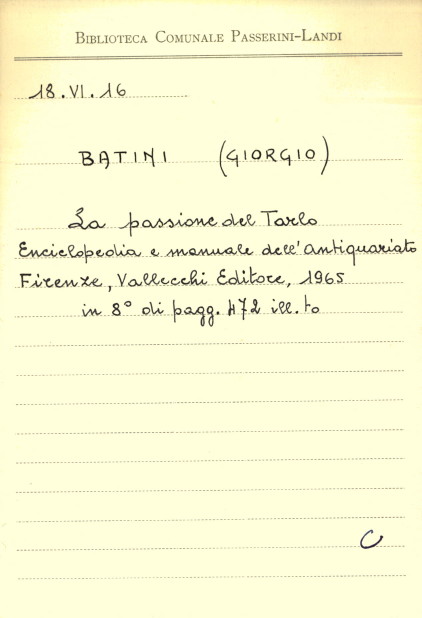 BIBLIOTECA COMUNALE PASSERINI-LANDI
18.VI.16
BATINI (GIORGIO)
La passione del Tarlo
Enciclopedia e manuale dell'Antiquariato
Firenze, Vallecchi Editore, 1965
in 8° di pagg. 472 ill.to
C